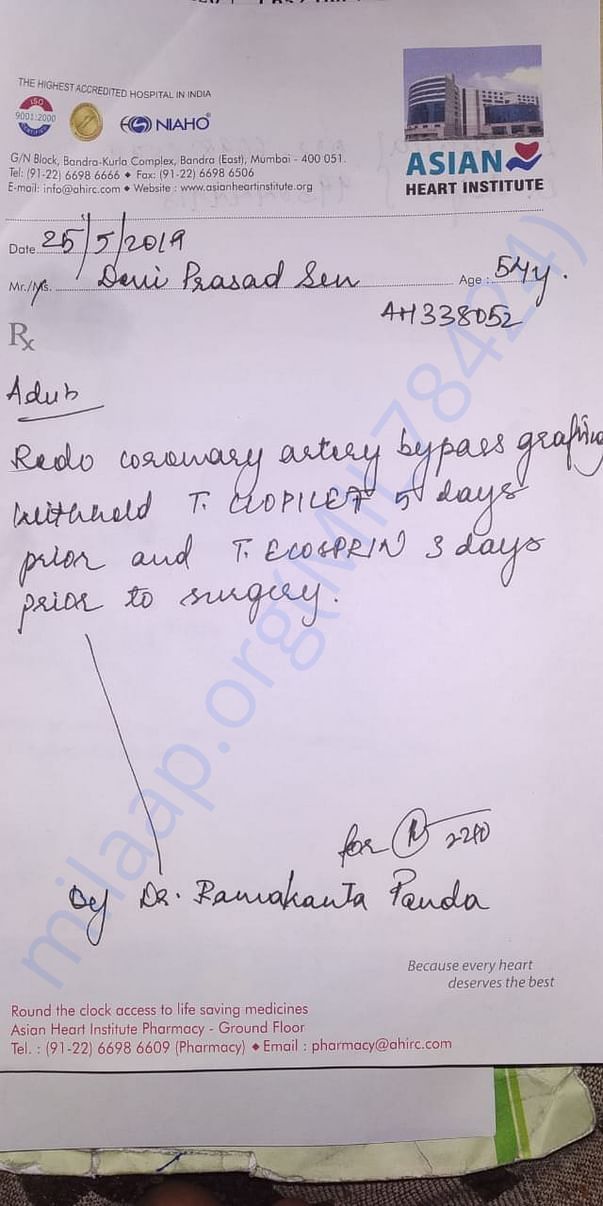 THE HIGHEST ACCREDITED HOSPITAL IN INDIA
ISO
9001:2000
CERTIFIED
NIAHO
G/N Block, Bandra-Kurla Complex, Bandra (East), Mumbai - 400 051.
Tel: (91-22) 6698 6666 ◆ Fax: (91-22) 6698 6506
E-mail: info@ahirc.com ◆ Website : www.asianheartinstitute.org
ASIAN
HEART INSTITUTE
Date 25/5/2019
Mr./Ms. Devi Prasad Sen Age : 54y.
AH338052
Rx
Redo coronary artery bypass grafting
withhold T. CLOPILET 5 days
prior and T. ECOSPRIN 3 days
prior to surgery.
for
By Dr. Ramakanta Panda
Because every heart
deserves the best
Round the clock access to life saving medicines
Asian Heart Institute Pharmacy - Ground Floor
Tel. : (91-22) 6698 6609 (Pharmacy) ◆ Email : pharmacy@ahirc.com
milaap.org(MIL78424)